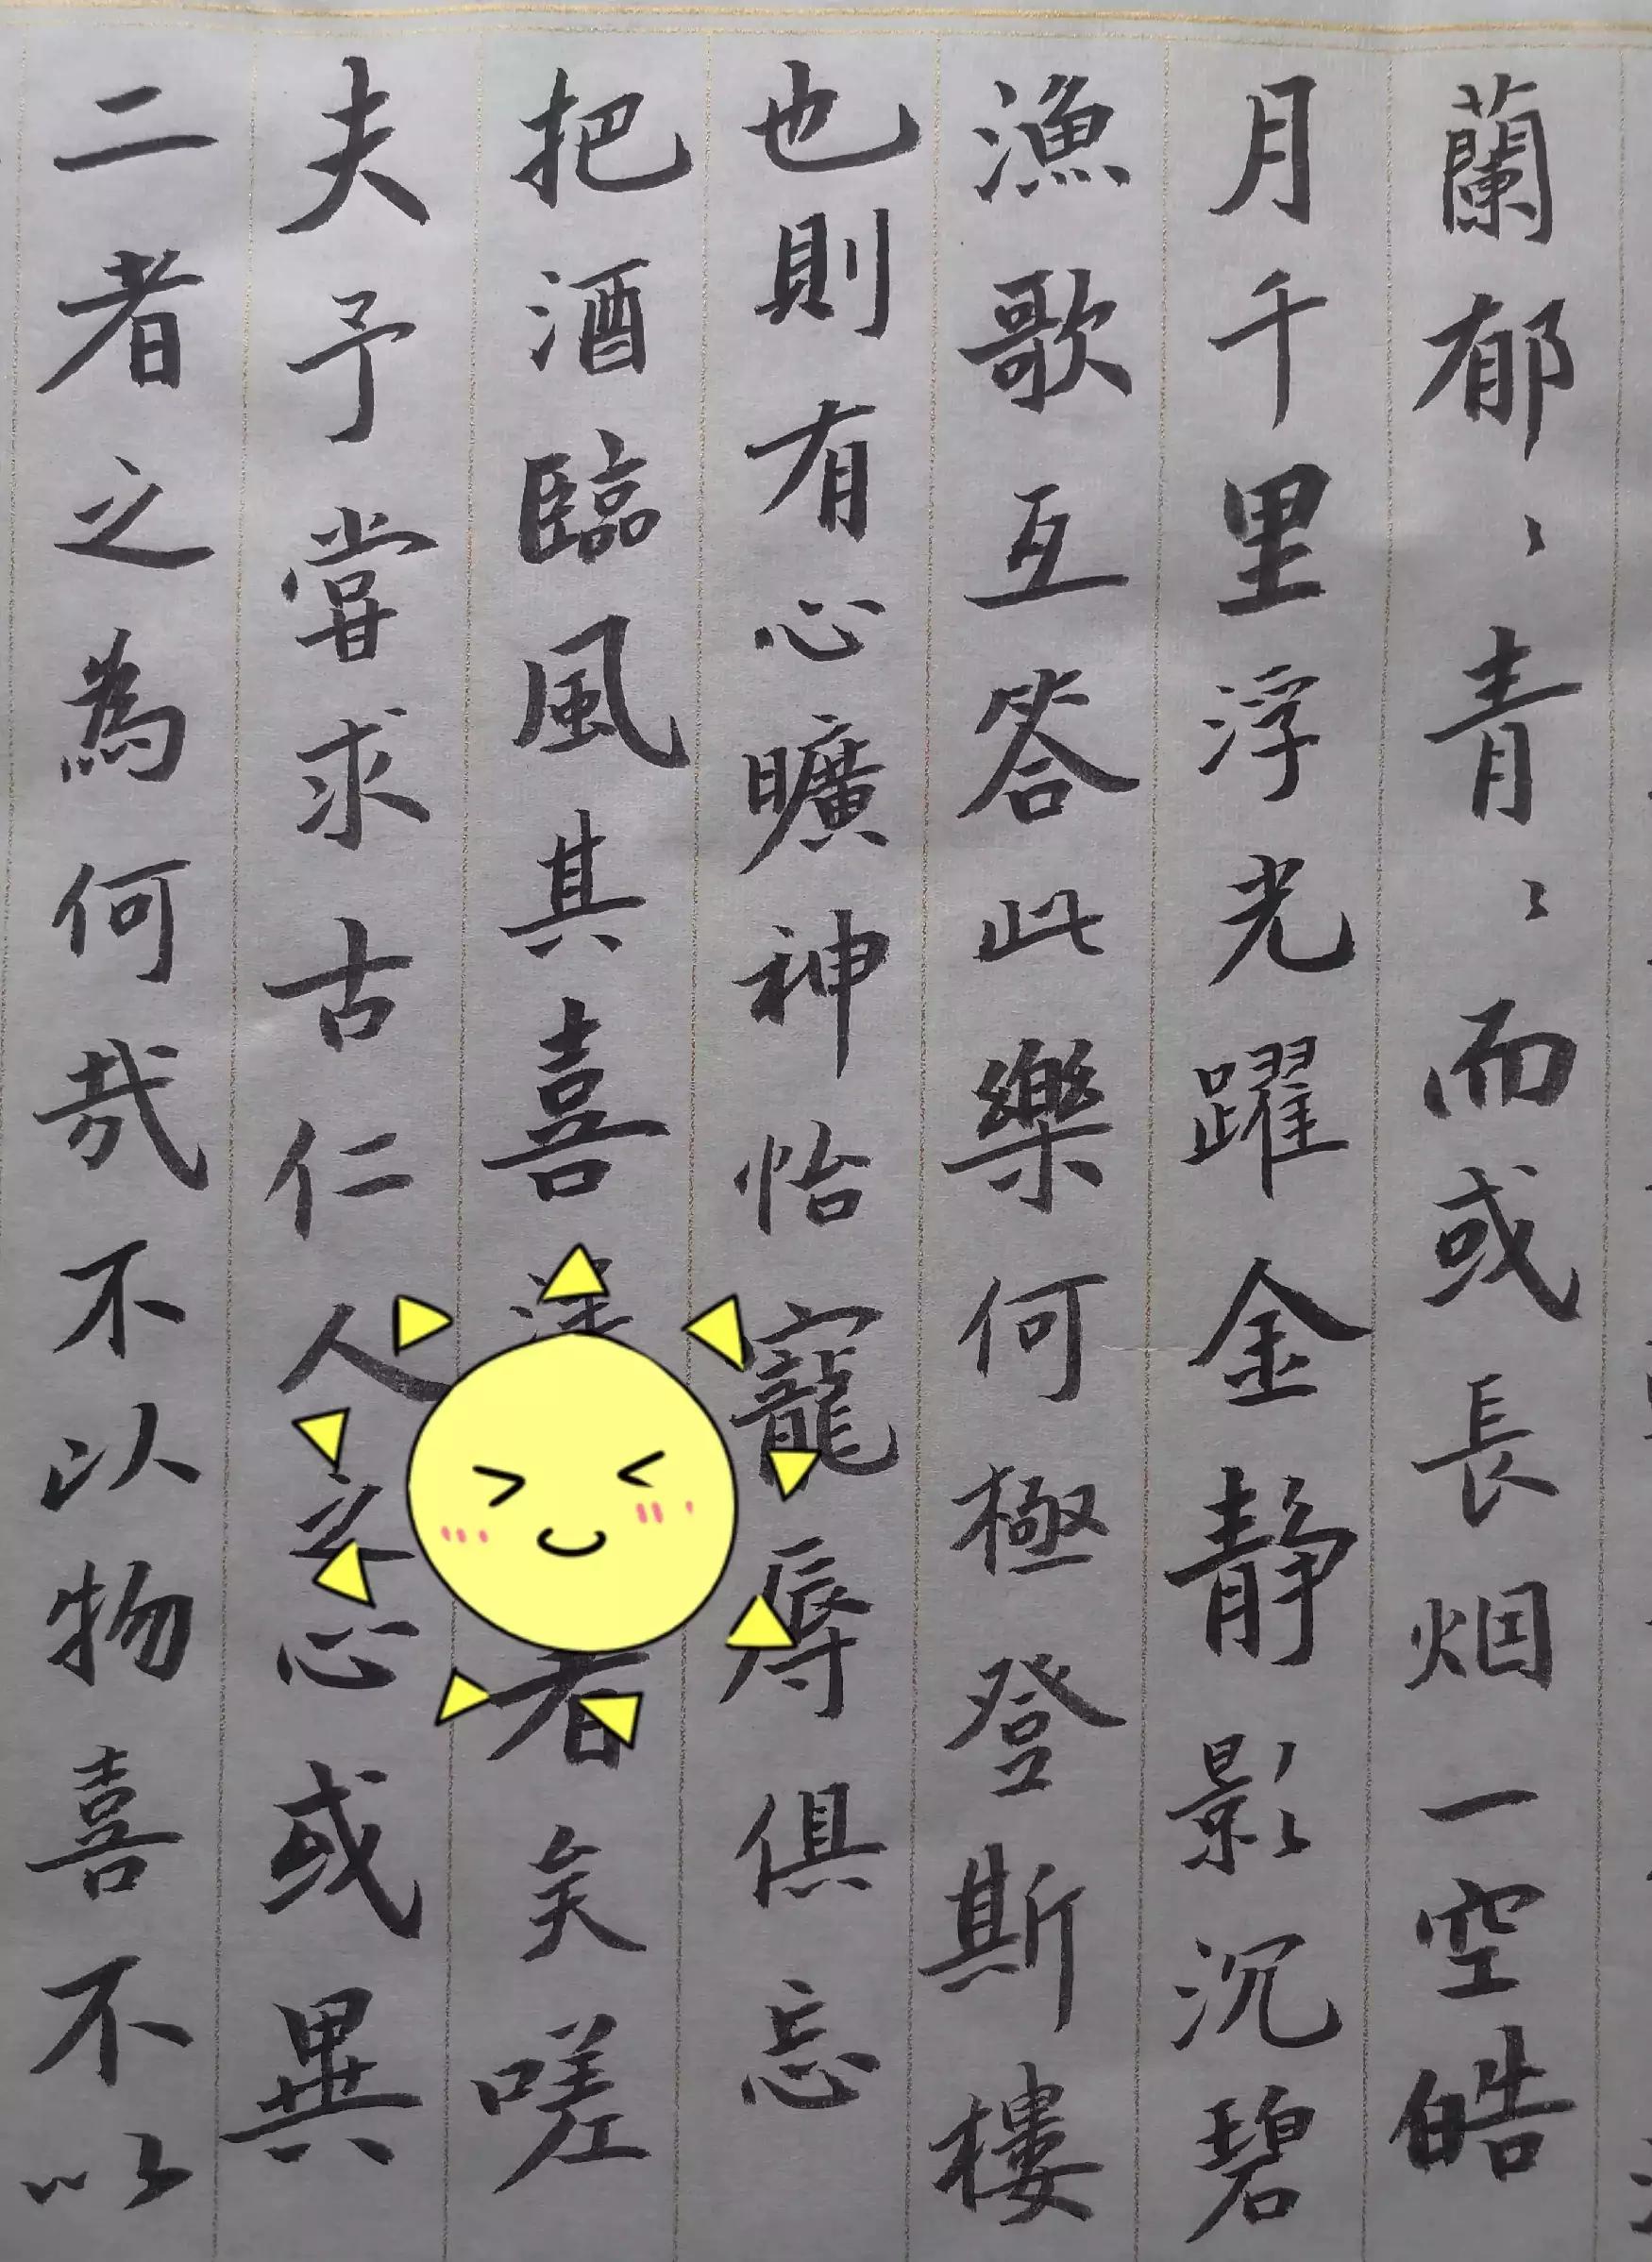 蘭郁〻青〻而或長烟一空皓
月千里浮光躍金静影沉碧
漁歌互答此樂何極登斯樓
也則有心曠神怡寵辱俱忘
把酒臨風其喜者矣嗟
夫予甞求古仁人之心或異
二者之為何哉不以物喜不以